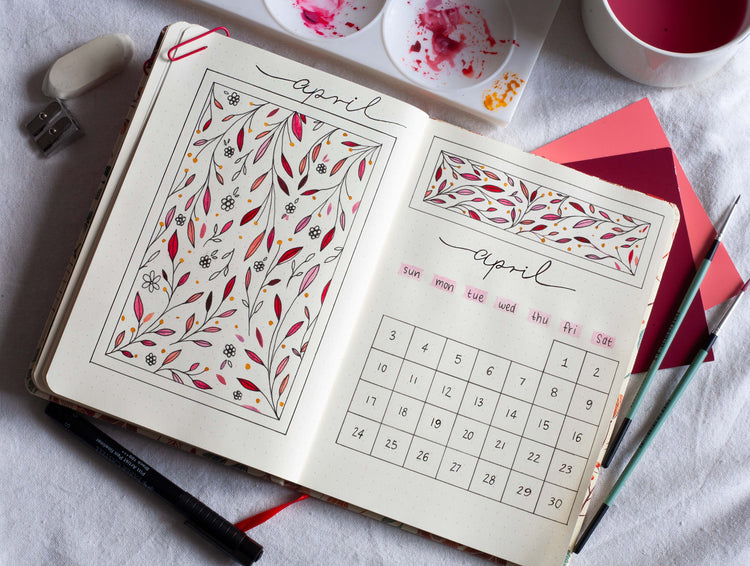 april
april
sun mon tue wed thu fri Sat
1 2
3 4 5 6 7 8 9
10 11 12 13 14 15 16
17 18 19 20 21 22 23
24 25 26 27 28 29 30